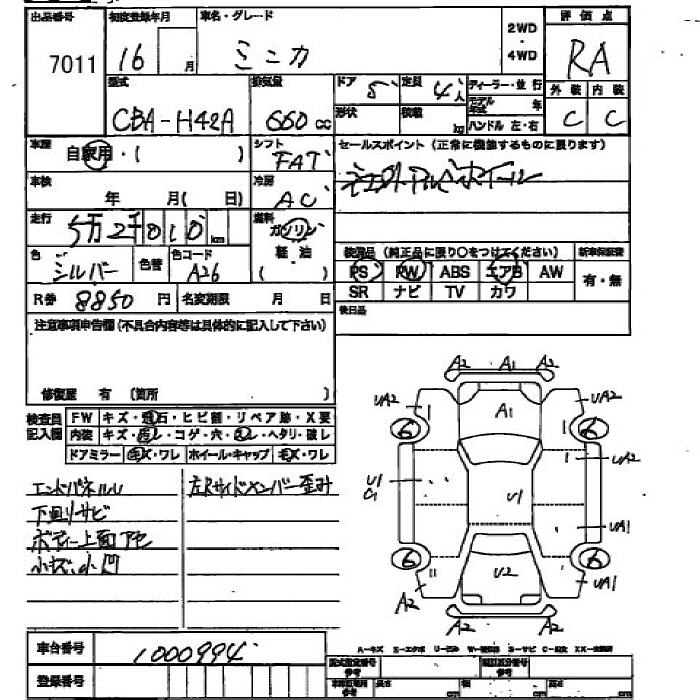 出品番号 初度登録年月 車名・グレード 2WD・4WD 評価点
7011 16 月 ミニカ RA
型式 排気量 ドア 5 定員 4人 ディーラー・並行 外装 内装
CBA-H42A 660cc 形状 積載 kg モデル年式 年 C C
ハンドル 左・右
車歴 自家用・( ) シフト FAT セールスポイント(正常に機能するものに限ります)
車検 年 月( 日) 冷房 AC
走行 5万2千010km 燃料 ガソリン
軽油
( )
色 シルバー 色替 色コード A26
装備品(純正品に限り○をつけてください) 新車保証書
PS PW ABS エアB AW 有・無
SR ナビ TV カワ
R券 8850円 名変期限 月 日 後日品
注意事項申告欄(不具合内容等は具体的に記入して下さい)
修復歴 有 (箇所 )
検査員記入欄 FW キズ・飛石・ヒビ割・リペア跡・X要
内装 キズ・汚レ・コゲ・穴・スレ・ヘタリ・破レ
ドアミラー キX・ワレ ホイール・キャップ キX・ワレ
エンドパネルU 左Rサイドメンバー歪み
下回りサビ
ボディー上面アセ
小キズ、小凹
A2 A1 A2
UA2 A1 UA2
6 6
U1 C1 U1 UA2
UA1
6 6
A2 U2 UA1
A2 A2
車台番号 1000994
登録番号
型式指定番号 参考 類別区分番号 参考
車検証専用 参考 長さ cm 幅 cm 高さ cm